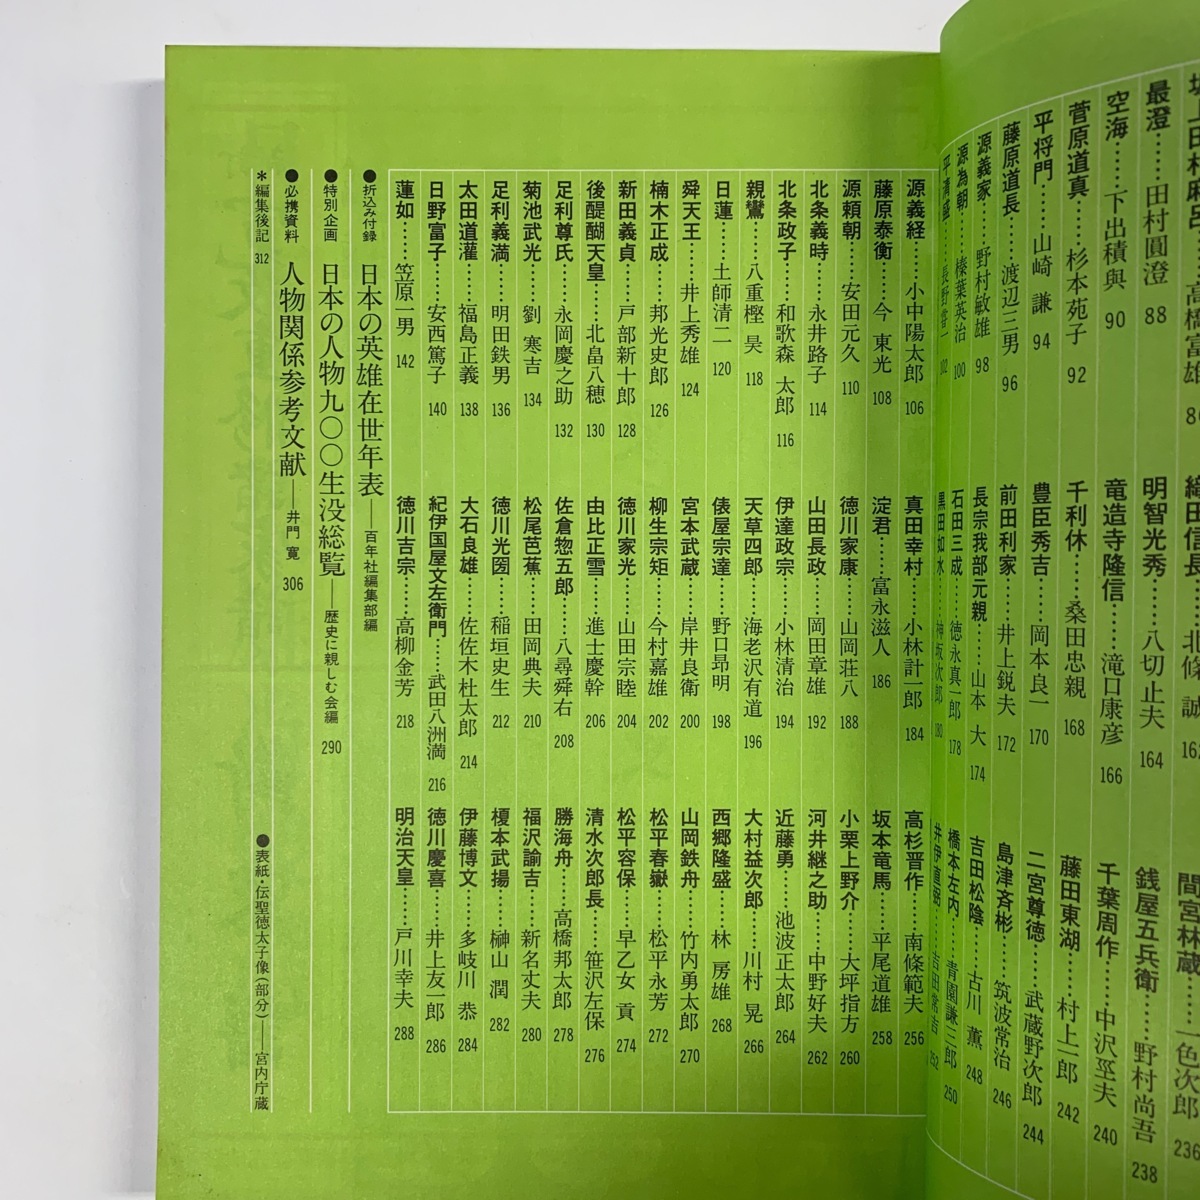 坂上田村麻呂……高橋富雄 86
最澄……田村圓澄 88
空海……下出積與 90
菅原道真……杉本苑子 92
平将門……山崎 謙 94
藤原道長……渡辺三男 96
源義家……野村敏雄 98
源為朝……榛葉英治 100
平清盛……長野甞一 102
源義経……小中陽太郎 106
藤原泰衡……今 東光 108
源頼朝……安田元久 110
北条義時……永井路子 114
北条政子……和歌森 太郎 116
親鸞……八重樫 昊 118
日蓮……土師清二 120
舜天王……井上秀雄 124
楠木正成……邦光史郎 126
新田義貞……戸部新十郎 128
後醍醐天皇……北畠八穂 130
足利尊氏……永岡慶之助 132
菊池武光……劉 寒吉 134
足利義満……明田鉄男 136
太田道灌……福島正義 138
日野富子……安西篤子 140
蓮如……笠原一男 142
織田信長……北條 誠 162
明智光秀……八切止夫 164
竜造寺隆信……滝口康彦 166
千利休……桑田忠親 168
豊臣秀吉……岡本良一 170
前田利家……井上鋭夫 172
長宗我部元親……山本 大 174
石田三成……徳永真一郎 178
黒田如水……神坂次郎 180
真田幸村……小林計一郎 184
淀君……富永滋人 186
徳川家康……山岡荘八 188
山田長政……岡田章雄 192
伊達政宗……小林清治 194
天草四郎……海老沢有道 196
俵屋宗達……野口昂明 198
宮本武蔵……岸井良衛 200
柳生宗矩……今村嘉雄 202
徳川家光……山田宗睦 204
由比正雪……進士慶幹 206
佐倉惣五郎……八尋舜右 208
松尾芭蕉……田岡典夫 210
徳川光圀……稲垣史生 212
大石良雄……佐佐木杜太郎 214
紀伊国屋文左衛門……武田八洲満 216
徳川吉宗……高柳金芳 218
間宮林蔵……一色次郎 236
銭屋五兵衛……野村尚吾 238
千葉周作……中沢巠夫 240
藤田東湖……村上一郎 242
二宮尊徳……武蔵野次郎 244
島津斉彬……筑波常治 246
吉田松陰……古川 薫 248
橋本左内……青園謙三郎 250
井伊直弼……吉田常吉 252
高杉晋作……南條範夫 256
坂本竜馬……平尾道雄 258
小栗上野介……大坪指方 260
河井継之助……中野好夫 262
近藤勇……池波正太郎 264
大村益次郎……川村 晃 266
西郷隆盛……林 房雄 268
山岡鉄舟……竹内勇太郎 270
松平春嶽……松平永芳 272
松平容保……早乙女 貢 274
清水次郎長……笹沢左保 276
勝海舟……高橋邦太郎 278
福沢諭吉……新名丈夫 280
榎本武揚……榊山 潤 282
伊藤博文……多岐川 恭 284
徳川慶喜……井上友一郎 286
明治天皇……戸川幸夫 288
●折込み付録 日本の英雄在世年表——百年社編集部編
●特別企画 日本の人物九〇〇生没総覧——歴史に親しむ会編 290
●必携資料 人物関係参考文献——井門 寛 306
＊編集後記 312
●表紙・伝聖徳太子像（部分）——宮内庁蔵